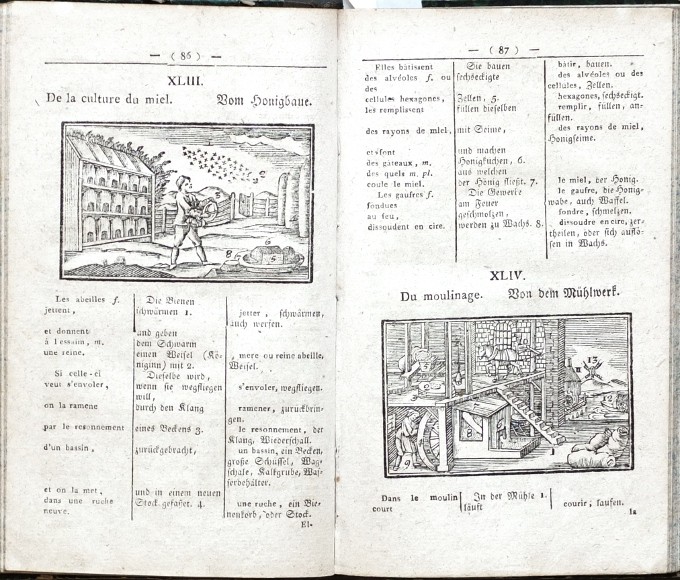 — ( 86 ) —
XLIII.
De la culture du miel. Vom Honigbaue.
Les abeilles f.
jettent,
et donnent
à l'essaim, m.
une reine.
Si celle-ci
veut s'envoler,
on la ramene
par le resonnement
d'un bassin,
et on la met,
dans une ruche
neuve.
Die Bienen
schwärmen 1.
und geben
dem Schwarm
einen Weisel (Kö-
niginn) mit 2.
Dieselbe wird,
wenn sie wegfliegen
will,
durch den Klang
eines Beckens 3.
zurückgebracht,
und in einem neuen
Stock gefasset. 4.
jetter, schwärmen,
auch werfen.
mere ou reine abeille,
Weisel.
s'envoler, wegfliegen.
ramener, zurückbrin-
gen.
le resonnement, der
Klang, Wiederschall.
un bassin, ein Becken,
große Schüssel, Wag-
schale, Kalkgrube, Was-
serbehälter.
une ruche, ein Bie-
nenkorb, oder Stock.
El-
— ( 87 ) —
Elles bâtissent
des alvéoles f. ou
des
cellules hexagones,
les remplissent
des rayons de miel,
et font
des gâteaux, m.
des quels m. pl.
coule le miel.
Les gaufres f.
fondues
au feu,
dissoudent en cire.
Sie bauen
sechseckigte
Zellen, 5.
füllen dieselben
mit Seime,
und machen
Honigkuchen, 6.
aus welchen
der Hönig fließt. 7.
Die Gewerke
am Feuer
geschmolzen,
werden zu Wachs. 8.
bâtir, bauen.
des alvéoles ou des
cellules, Zellen.
hexagones, sechseckigt.
remplir, füllen, an-
füllen.
des rayons de miel,
Honigseime.
le miel, der Honig.
le gaufre, die Honig-
wabe, auch Waffel.
fondre, schmelzen.
dissoudre en cire, zer-
theilen, oder sich auflö-
sen in Wachs.
XLIV.
Du moulinage. Von dem Mühlwerk.
Dans le moulin
court
In der Mühle 1.
läuft
courir, laufen.
la